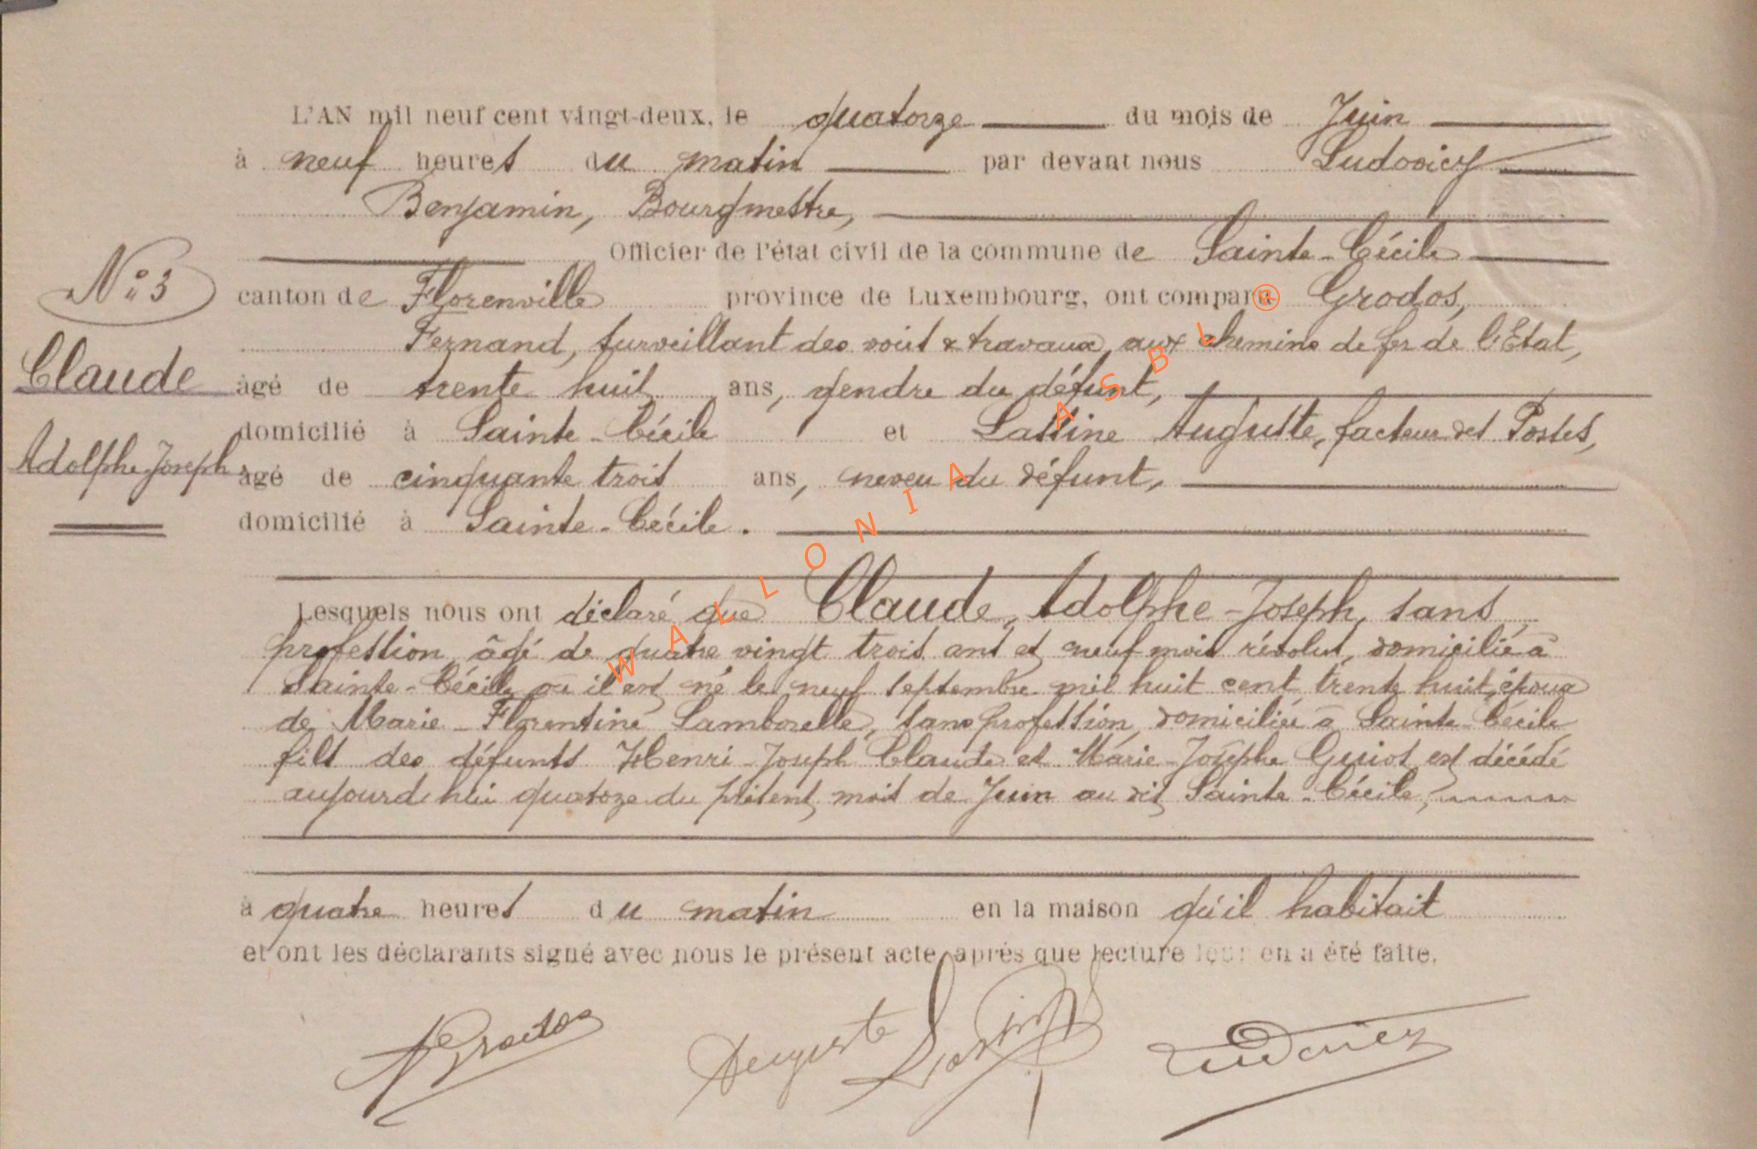 L'AN mil neuf cent vingt-deux, le quatorze du mois de Juin
à neuf heures du matin par devant nous Ludovicy
Benjamin, Bourgmestre,
Officier de l'état civil de la commune de Sainte-Cécile
N° 3
canton de Florenville province de Luxembourg, ont comparu Grodos,
Fernand, surveillant des voies & travaux, aux chemins de fer de l'Etat,
Claude
âgé de trente huit ans, gendre du défunt,
domicilié à Sainte-Cécile et Lassine Auguste, facteur des Postes,
Adolphe-Joseph
âgé de cinquante trois ans, neveu du défunt,
domicilié à Sainte-Cécile.
Lesquels nous ont déclaré que Claude, Adolphe-Joseph, sans
profession, âgé de quatre vingt trois ans et neuf mois révolus, domicilié à
Sainte-Cécile où il est né le neuf septembre mil huit cent trente huit, époux
de Marie-Florentine Lamborelle, sans profession, domiciliée à Sainte-Cécile
fils des défunts Henri-Joseph Claude et Marie-Josèphe Guiot est décédé
aujourd'hui quatorze du présent mois de Juin au dit Sainte-Cécile,
à quatre heures du matin en la maison qu'il habitait
et ont les déclarants signé avec nous le présent acte, après que lecture leur en a été faite.
Grodos Auguste Ludovicy
WALLONIA ASBL ®